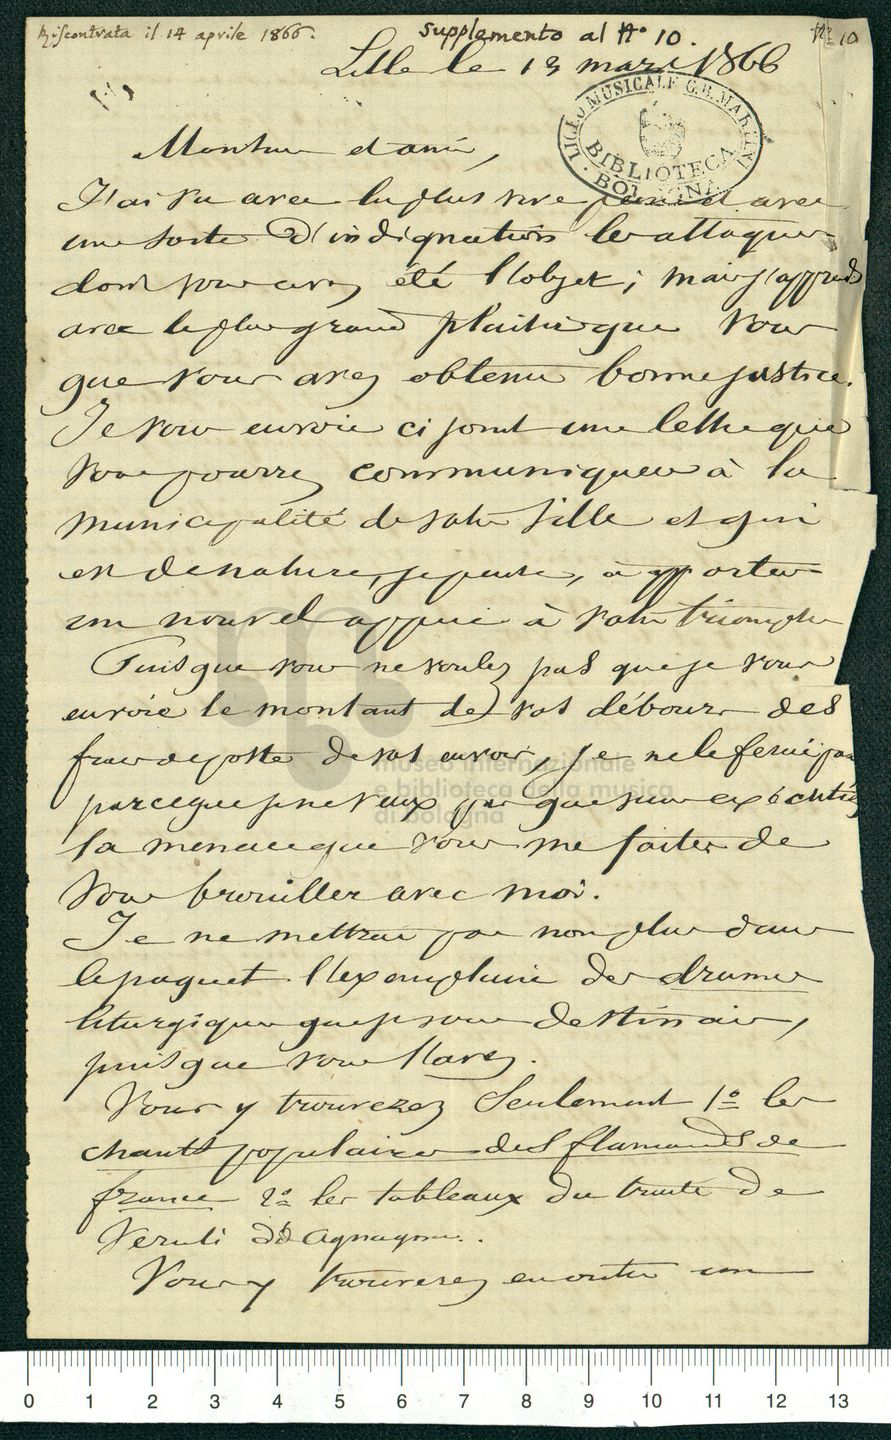 Riscontrata il 14 aprile 1866.
Supplemento al N° 10.
N° 10
Lille le 13 mars 1866
LICEO MUSICALE G.B. MARTINI
BIBLIOTECA
BOLOGNA
Monsieur et ami,
J'ai vu avec la plus vive peine et avec
une sorte d'indignation les attaques
dont vous avez été l'objet; mais j'apprends
avec le plus grand plaisir que vous
que vous avez obtenu bonne justice.
Je vous envoie ci joint une lettre que
vous pourrez communiquer à la
municipalité de votre ville et qui
est de nature, je pense, à apporter
un nouvel appui à votre triomphe
Puisque vous ne voulez pas que je vous
envoie le montant de vos débours des
frais de poste de vos envois, je ne le ferai pas
parceque je ne veux pas que vous exécutiez
la menace que vous me faites de
vous brouiller avec moi.
Je ne mettrai pas non plus dans
le paquet l'exemplaire des drames
liturgiques que je vous destinais,
puisque vous l'avez.
Vous y trouverez seulement 1° les
chants populaires des flamands de
france 2° les tableaux du traité de
Veruli d'Agnagnie.
Vous y trouverez en outre un
museo internazionale
e biblioteca della musica
di bologna
0 1 2 3 4 5 6 7 8 9 10 11 12 13